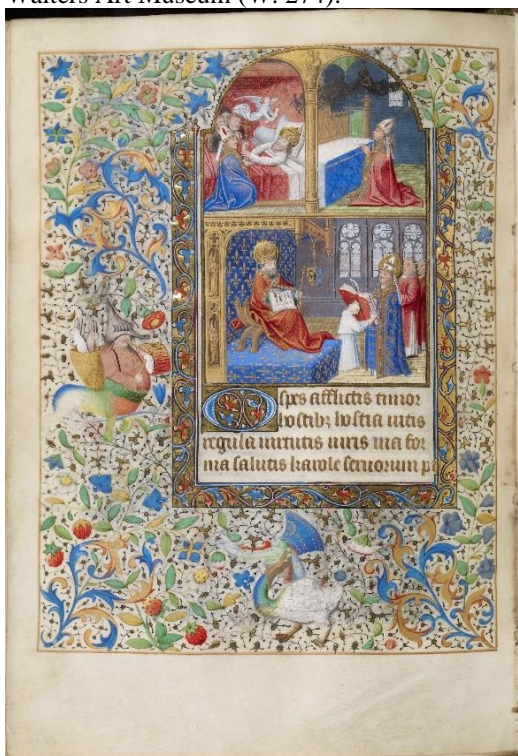 Walters Art Museum (W. 274).
O spes afflictis timor
hostibꝫ hostia uitis
regula uirtutis iuris uia for
ma salutis karole seruorum pi